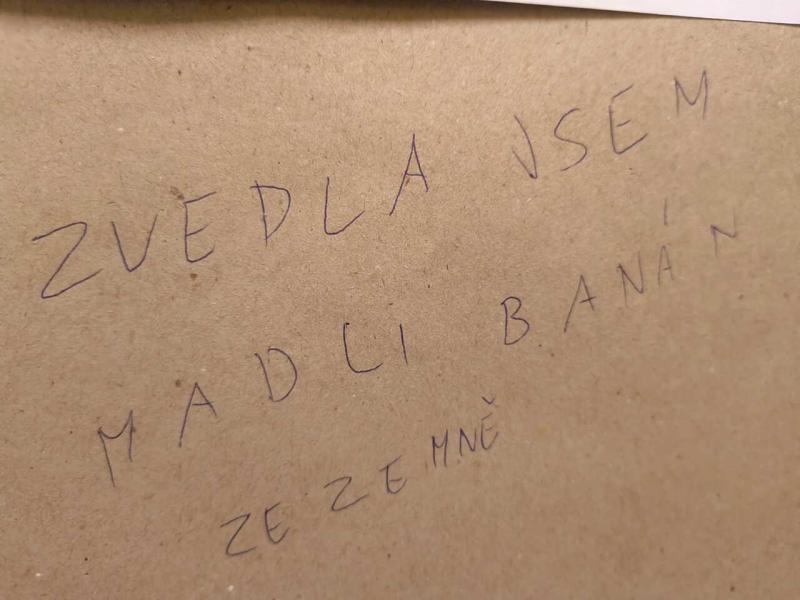 ZVEDLA JSEM
MADLI BANÁN
ZE ZEMNĚ